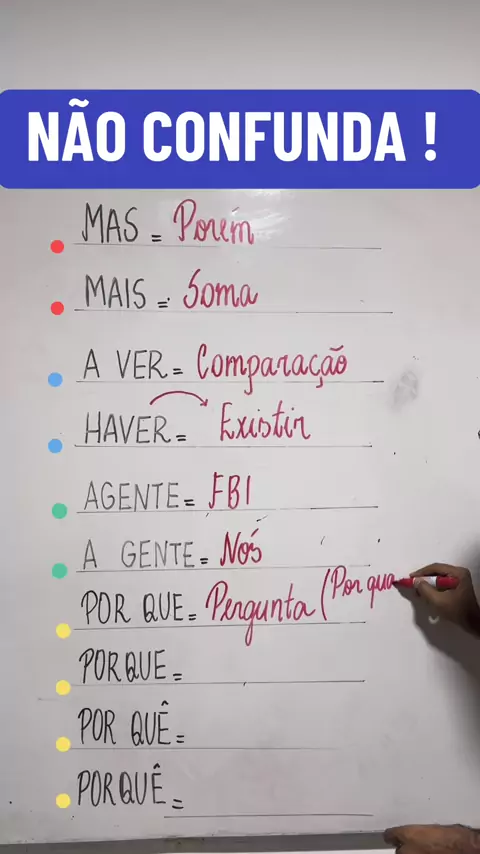 NÃO CONFUNDA !
MAS = Porém
MAIS = Soma
A VER = Comparação
HAVER = Existir
AGENTE = FBI
A GENTE = Nós
POR QUE = Pergunta (Por qua
PORQUE =
POR QUÊ =
PORQUÊ =